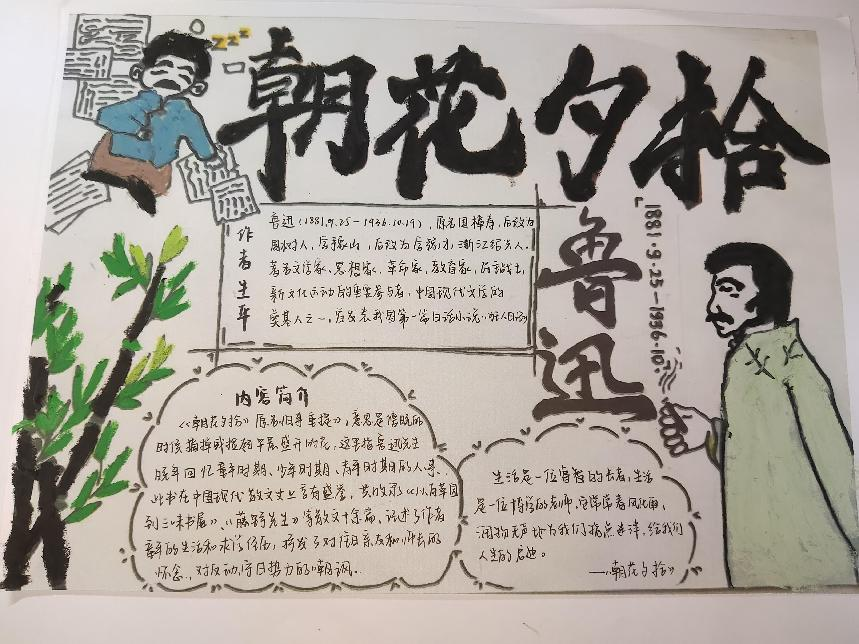 朝花夕拾
鲁迅
1881.9.25-1936.10.
zzz
作者生平
鲁迅(1881.9.25-1936.10.19),原名周樟寿,后改为
周树人,字豫山,后改为字豫才,浙江绍兴人。
著名文学家、思想家、革命家、教育家、民主战士,
新文化运动的重要参与者,中国现代文学的
奠基人之一。应发表我国第一篇白话小说《狂人日记》
内容简介
《朝花夕拾》原名《旧事重提》,意思是傍晚的
时候摘掉或捡起早晨盛开的花,这里指鲁迅先生
晚年回忆童年时期、少年时期、青年时期的人、事。
此书在中国现代散文史上享有盛誉,共收录《从百草园
到三味书屋》、《藤野先生》等散文十余篇,记述了作者
童年的生活和求学经历,抒发了对往日亲友和师长的
怀念,对反动、守旧势力的嘲讽。
生活是一位睿智的长者,生活
是一位博学的老师,它常常春风化雨,
润物无声地为我们指点迷津,给我们
人生的启迪。
——《朝花夕拾》